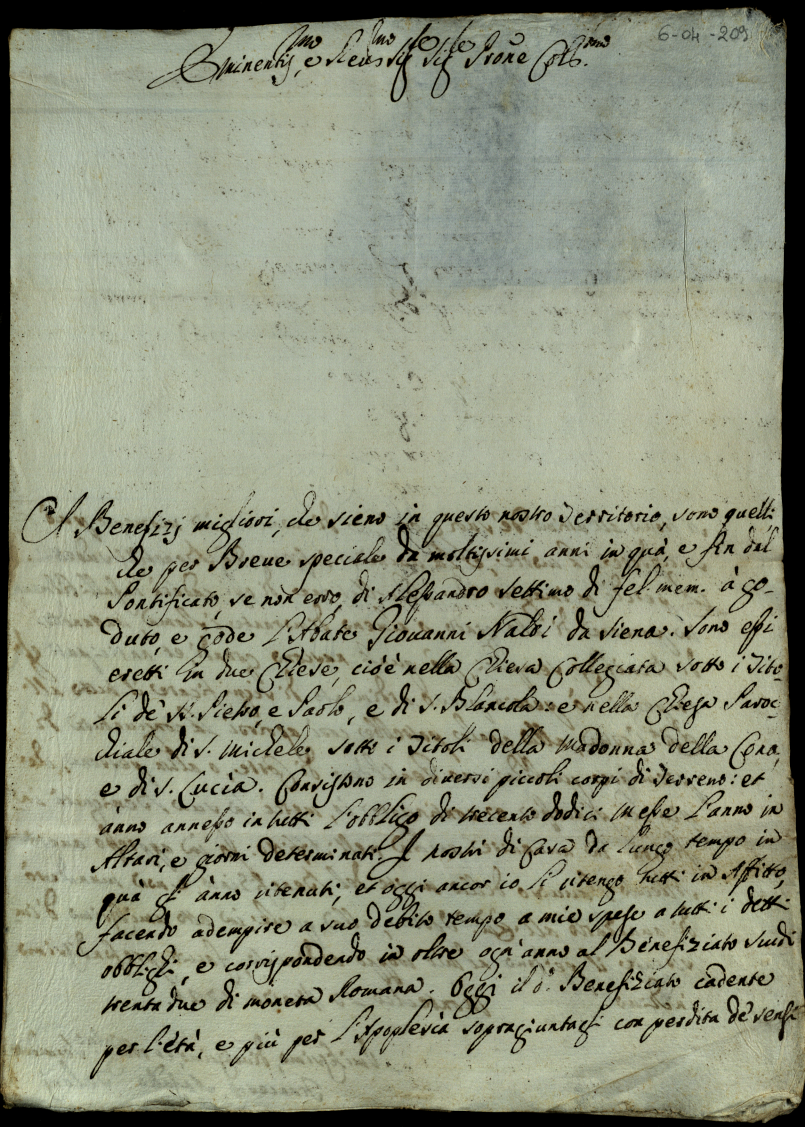 6-04-209
Eminentis.mo e Rev.mo Sig.re Sig.re Prone Col.mo
I Benefizj migliori, che sieno in questo nostro Territorio, sono quelli
che per Breve speciale da moltissimi anni in quà, e fin dal
Pontificato, se non erro, di Alessandro settimo di fel: mem. à go-
duto, e gode l'Abate Giovanni Naldi da Siena. Sono essi
eretti in due Chiese, cioè nella Chiesa Collegiata sotto i Tito-
li de' SS. Pietro, e Paolo, e di S. Biancola: e nella Chiesa Paroc-
chiale di S. Michele sotto i Titoli della Madonna della Cona,
e di S. Lucia. Consistono in diversi piccoli corpi di Terreno: et
ànno annesso in tutti l'obbligo di trecento dodici Messe l'anno in
Altari, e giorni determinati. I nostri di Casa da lungo tempo in
quà gl' ànno ritenuti, et oggi ancor io li ritengo tutti in Affitto,
facendo adempire a suo debito tempo a mie spese a tutti i detti
obblighi, e corrispondendo in oltre ogn'anno al Benefiziato scudi
trenta due di moneta Romana. Oggi il d.o Benefiziato cadente
per l'età, e più per l'Apoplesia sopragiuntagli con perdita de' sensi